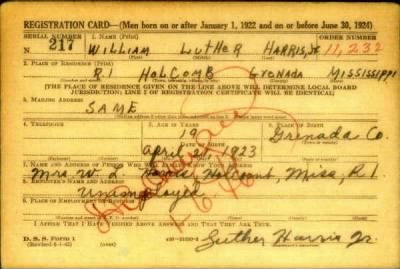 REGISTRATION CARD—(Men born on or after January 1, 1922 and on or before June 30, 1924)
SERIAL NUMBER 1. NAME (Print) ORDER NUMBER
217 WILLIAM LUTHER HARRIS, Jr 11,232
2. PLACE OF RESIDENCE (Print)
R1 HOLCOMB GRENADA MISSISSIPPI
(THE PLACE OF RESIDENCE GIVEN ON THE LINE ABOVE WILL DETERMINE LOCAL BOARD
JURISDICTION; LINE 2 OF REGISTRATION CERTIFICATE WILL BE IDENTICAL)
3. MAILING ADDRESS
SAME
4. TELEPHONE 5. AGE IN YEARS 6. PLACE OF BIRTH
19 Grenada Co.
DATE OF BIRTH
April 1923
7. NAME AND ADDRESS OF PERSON WHO WILL ALWAYS KNOW YOUR ADDRESS
Mrs W. L. Harris Holcomb, Miss, R1
8. EMPLOYER'S NAME AND ADDRESS
Unemployed
9. PLACE OF EMPLOYMENT OR BUSINESS
I AFFIRM THAT I HAVE VERIFIED ABOVE ANSWERS AND THAT THEY ARE TRUE.
D. S. S. Form 1
Luther Harris Jr.